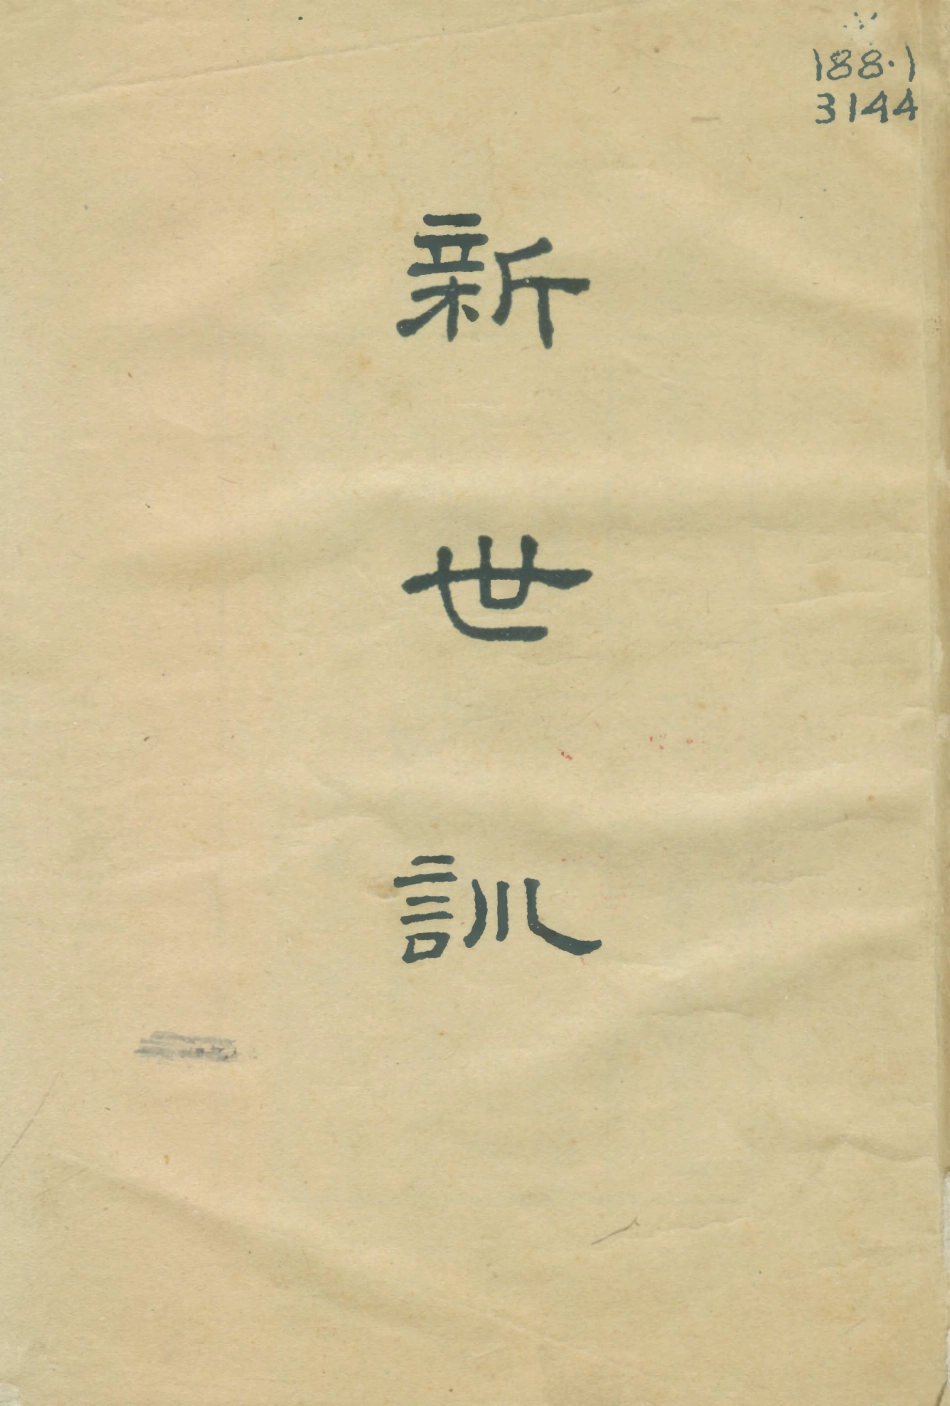 188.1
3144
新世訓